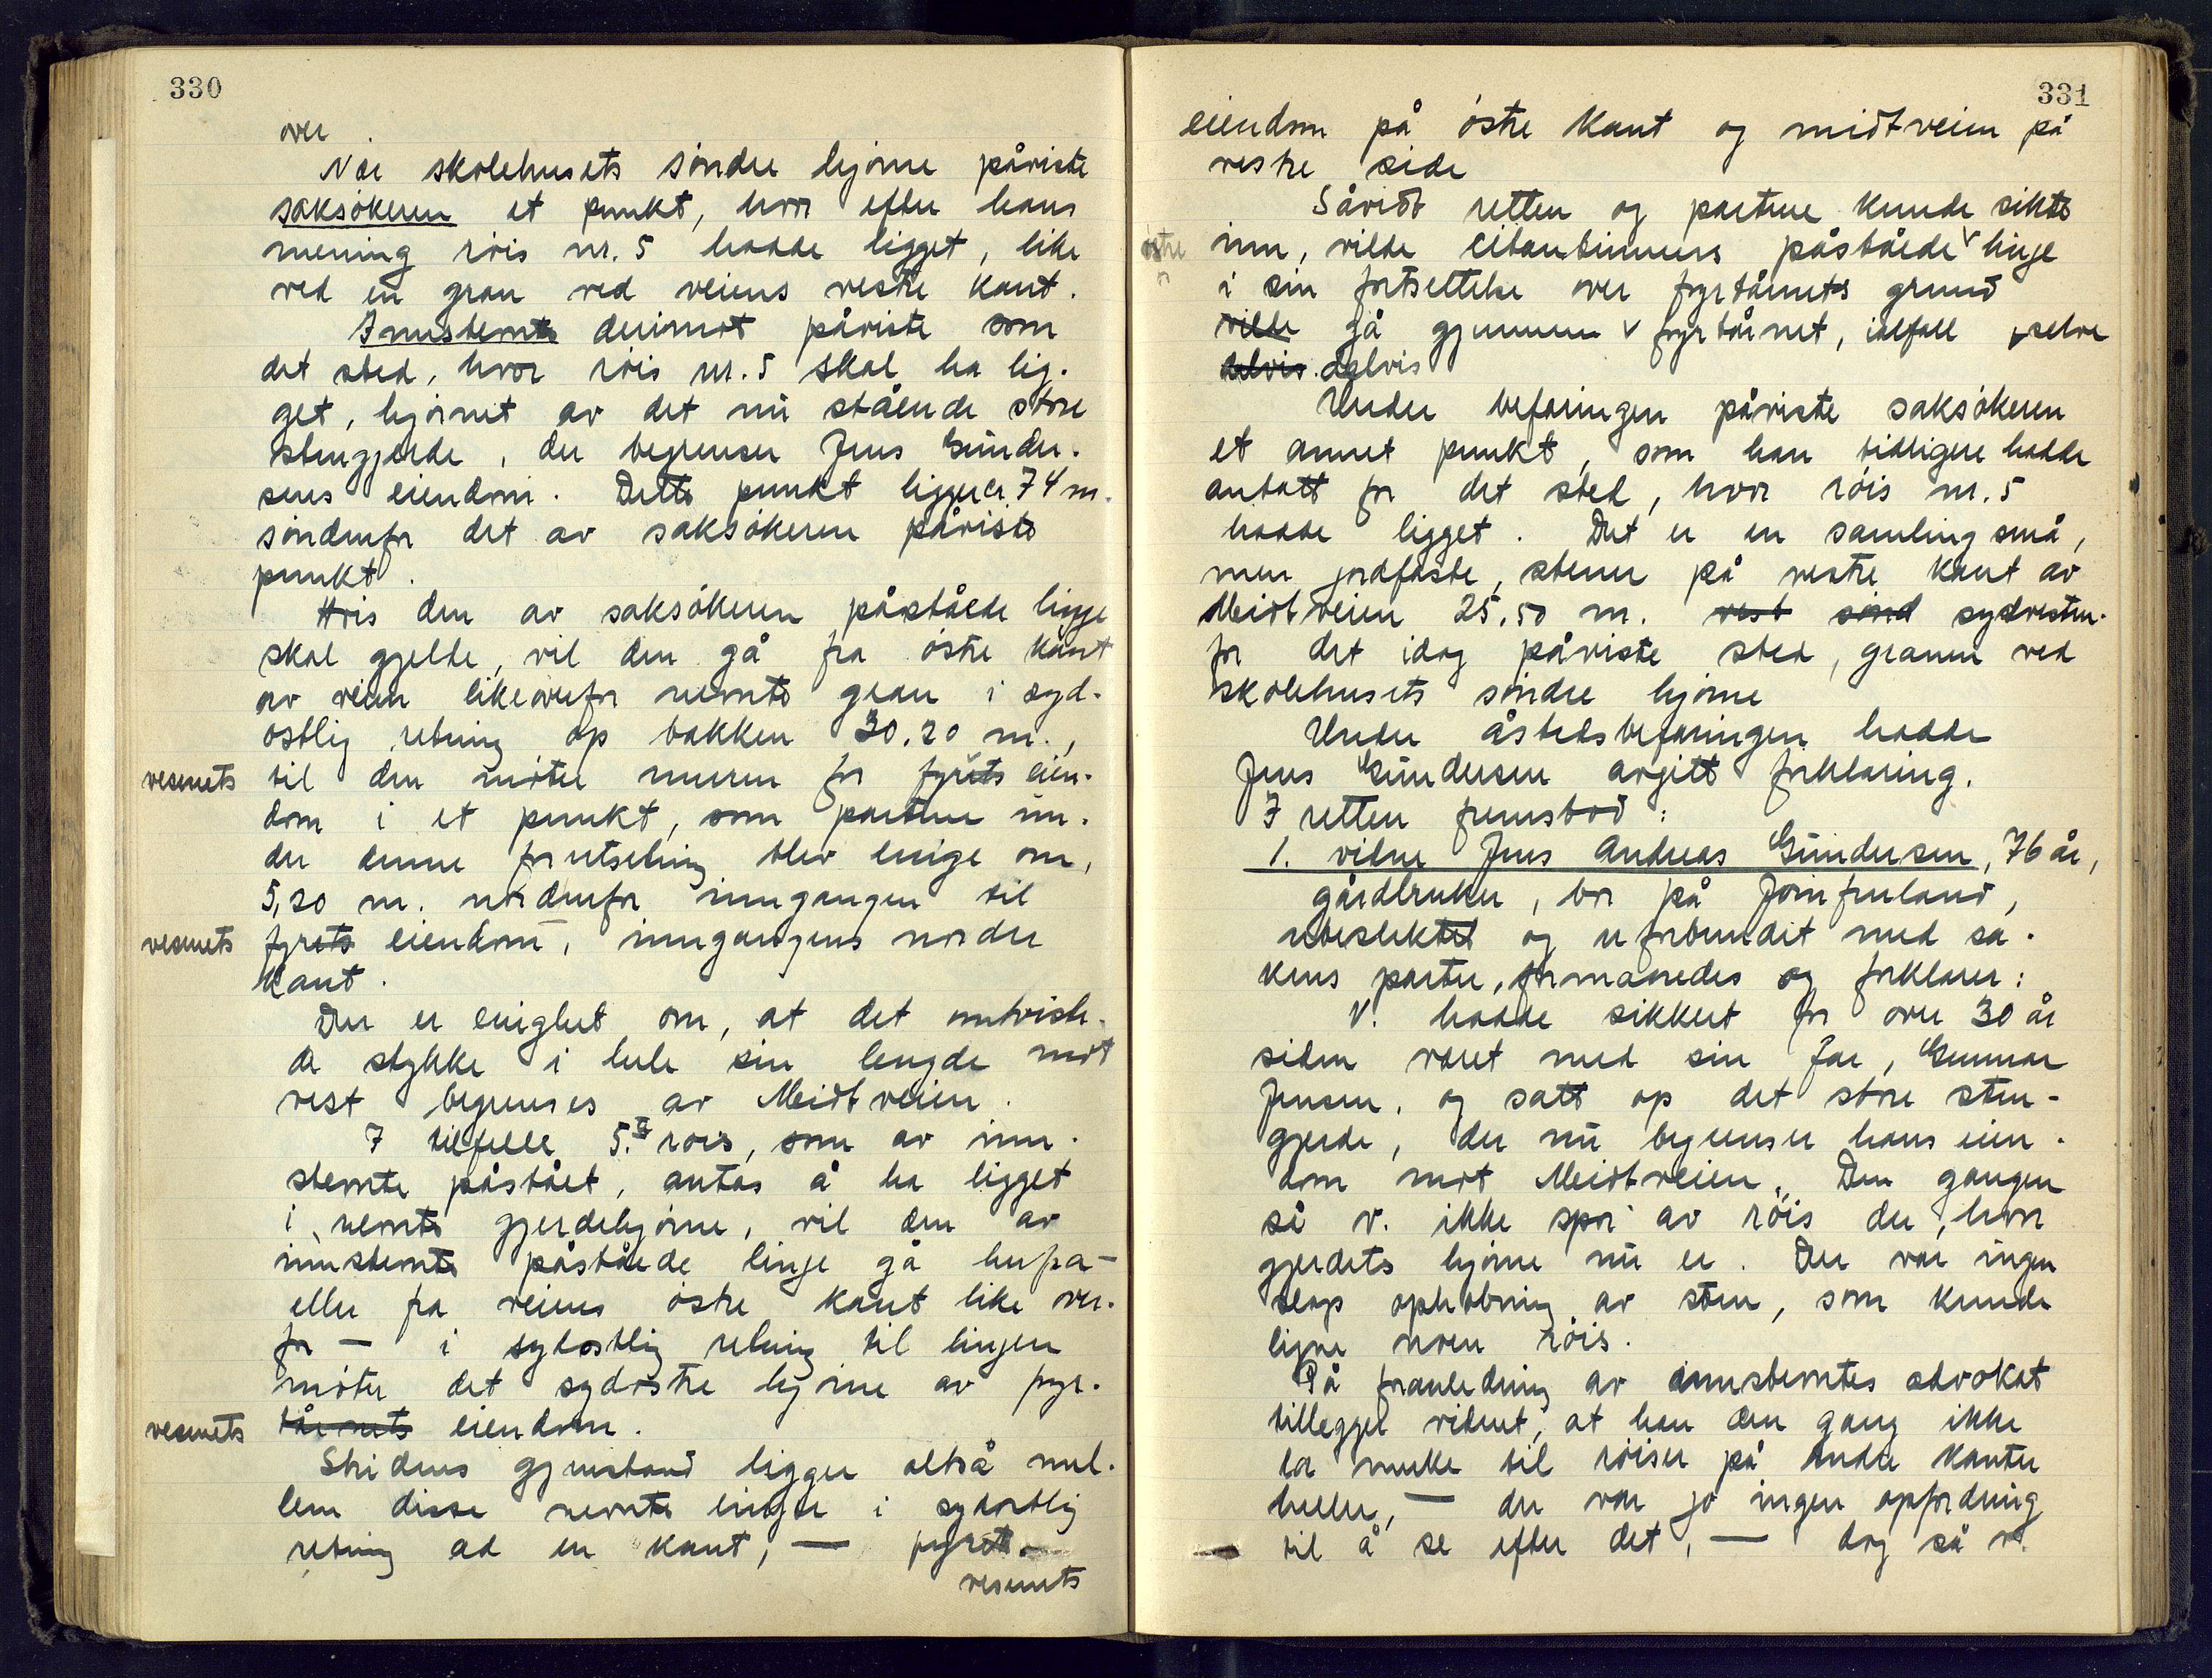 330
over
Nær skolehusets søndre hjørne påviste
saksøkeren et punkt, hvor efter hans
mening røis nr. 5 hadde ligget, like
ved en gran ved veiens vestre kant.
Innstevnte derimot påviste som
det sted, hvor røis nr. 5 skal ha lig-
get, hjørnet av det nu stående store
stengjerde, der begrenser Jens Gunder-
sens eiendom. Dette punkt ligger ca 74 m.
søndenfor det av saksøkeren påviste
punkt.
Hvis den av saksøkeren påståede linje
skal gjelde, vil den gå fra østre kant
av veien likeovenfor nevnte gran i syd-
østlig retning op bakken 30.20 m.,
vesenets til den møter muren for fyrets eien-
dom i et punkt, som partene un-
der denne forutsetning blev enige om,
5,20 m. nordenfor inngangen til
vesenets fyrets eiendom, inngangens nordre
kant.
Der er enighet om, at det omtviste-
de stykke i hele sin lengde mot
vest begrenses av Meidtveien.
I tilfelle 5. røis, som av inn-
stevnte påstået, antas å ha ligget
i nevnte gjerdehjørne, vil den av
innstevnte påståede linje gå herfra -
eller fra veiens østre kant like over-
for - i sydøstlig retning til linjen
møter det sydøstre hjørne av fyr-
vesenets tårnets eiendom.
Stridens gjenstand ligger altså mel-
lem disse nevnte linjer i sydøstlig
retning ad en kant, - fyrets
vesenets
331
eiendom på østre kant og midtveien på
vestre side
Såvidt retten og partene kunde sikte
østre inn, vilde citantinnens påståede v linje
i sin fortsettelse over fyrtårnets grund
vilde gå gjennem v fyrtårnet, ialfall v selve
delvis. delvis
Under befaringen påviste saksøkeren
et annet punkt, som han tidligere hadde
antatt for det sted, hvor røis nr. 5
hadde ligget. Det er en samling små,
men jordfaste, stener på vestre kant av
Meidtveien 25,50 m. vest sønd sydvesten-
for det idag påviste sted, granen ved
skolehusets søndre hjørne
Under åstedsbefaringen hadde
Jens Gundersen avgitt forklaring.
I retten fremstod:
1. vidne Jens Andreas Gundersen, 76 år,
gårdbruker, bor på Jomfruland,
ubeslektet og uforbundet med sa-
kens parter, formanedes og forklarer:
V. hadde sikkert for over 30 år
siden været med sin far, Gunnar
Jensen, og satt op det store sten-
gjerde, der nu begrenser hans eien-
dom mot Meidtveien. Den gangen
så v. ikke spor av røis der, hvor
gjerdets hjørne nu er. Der var ingen
slags ophobning av sten, som kunde
ligne noen røis.
På foranledning av innstevntes advokat
tillegger vidnet, at han den gang ikke
la merke til røiser på andre kanter
heller, - der var jo ingen opfordring
til å se efter det, - dog så v.